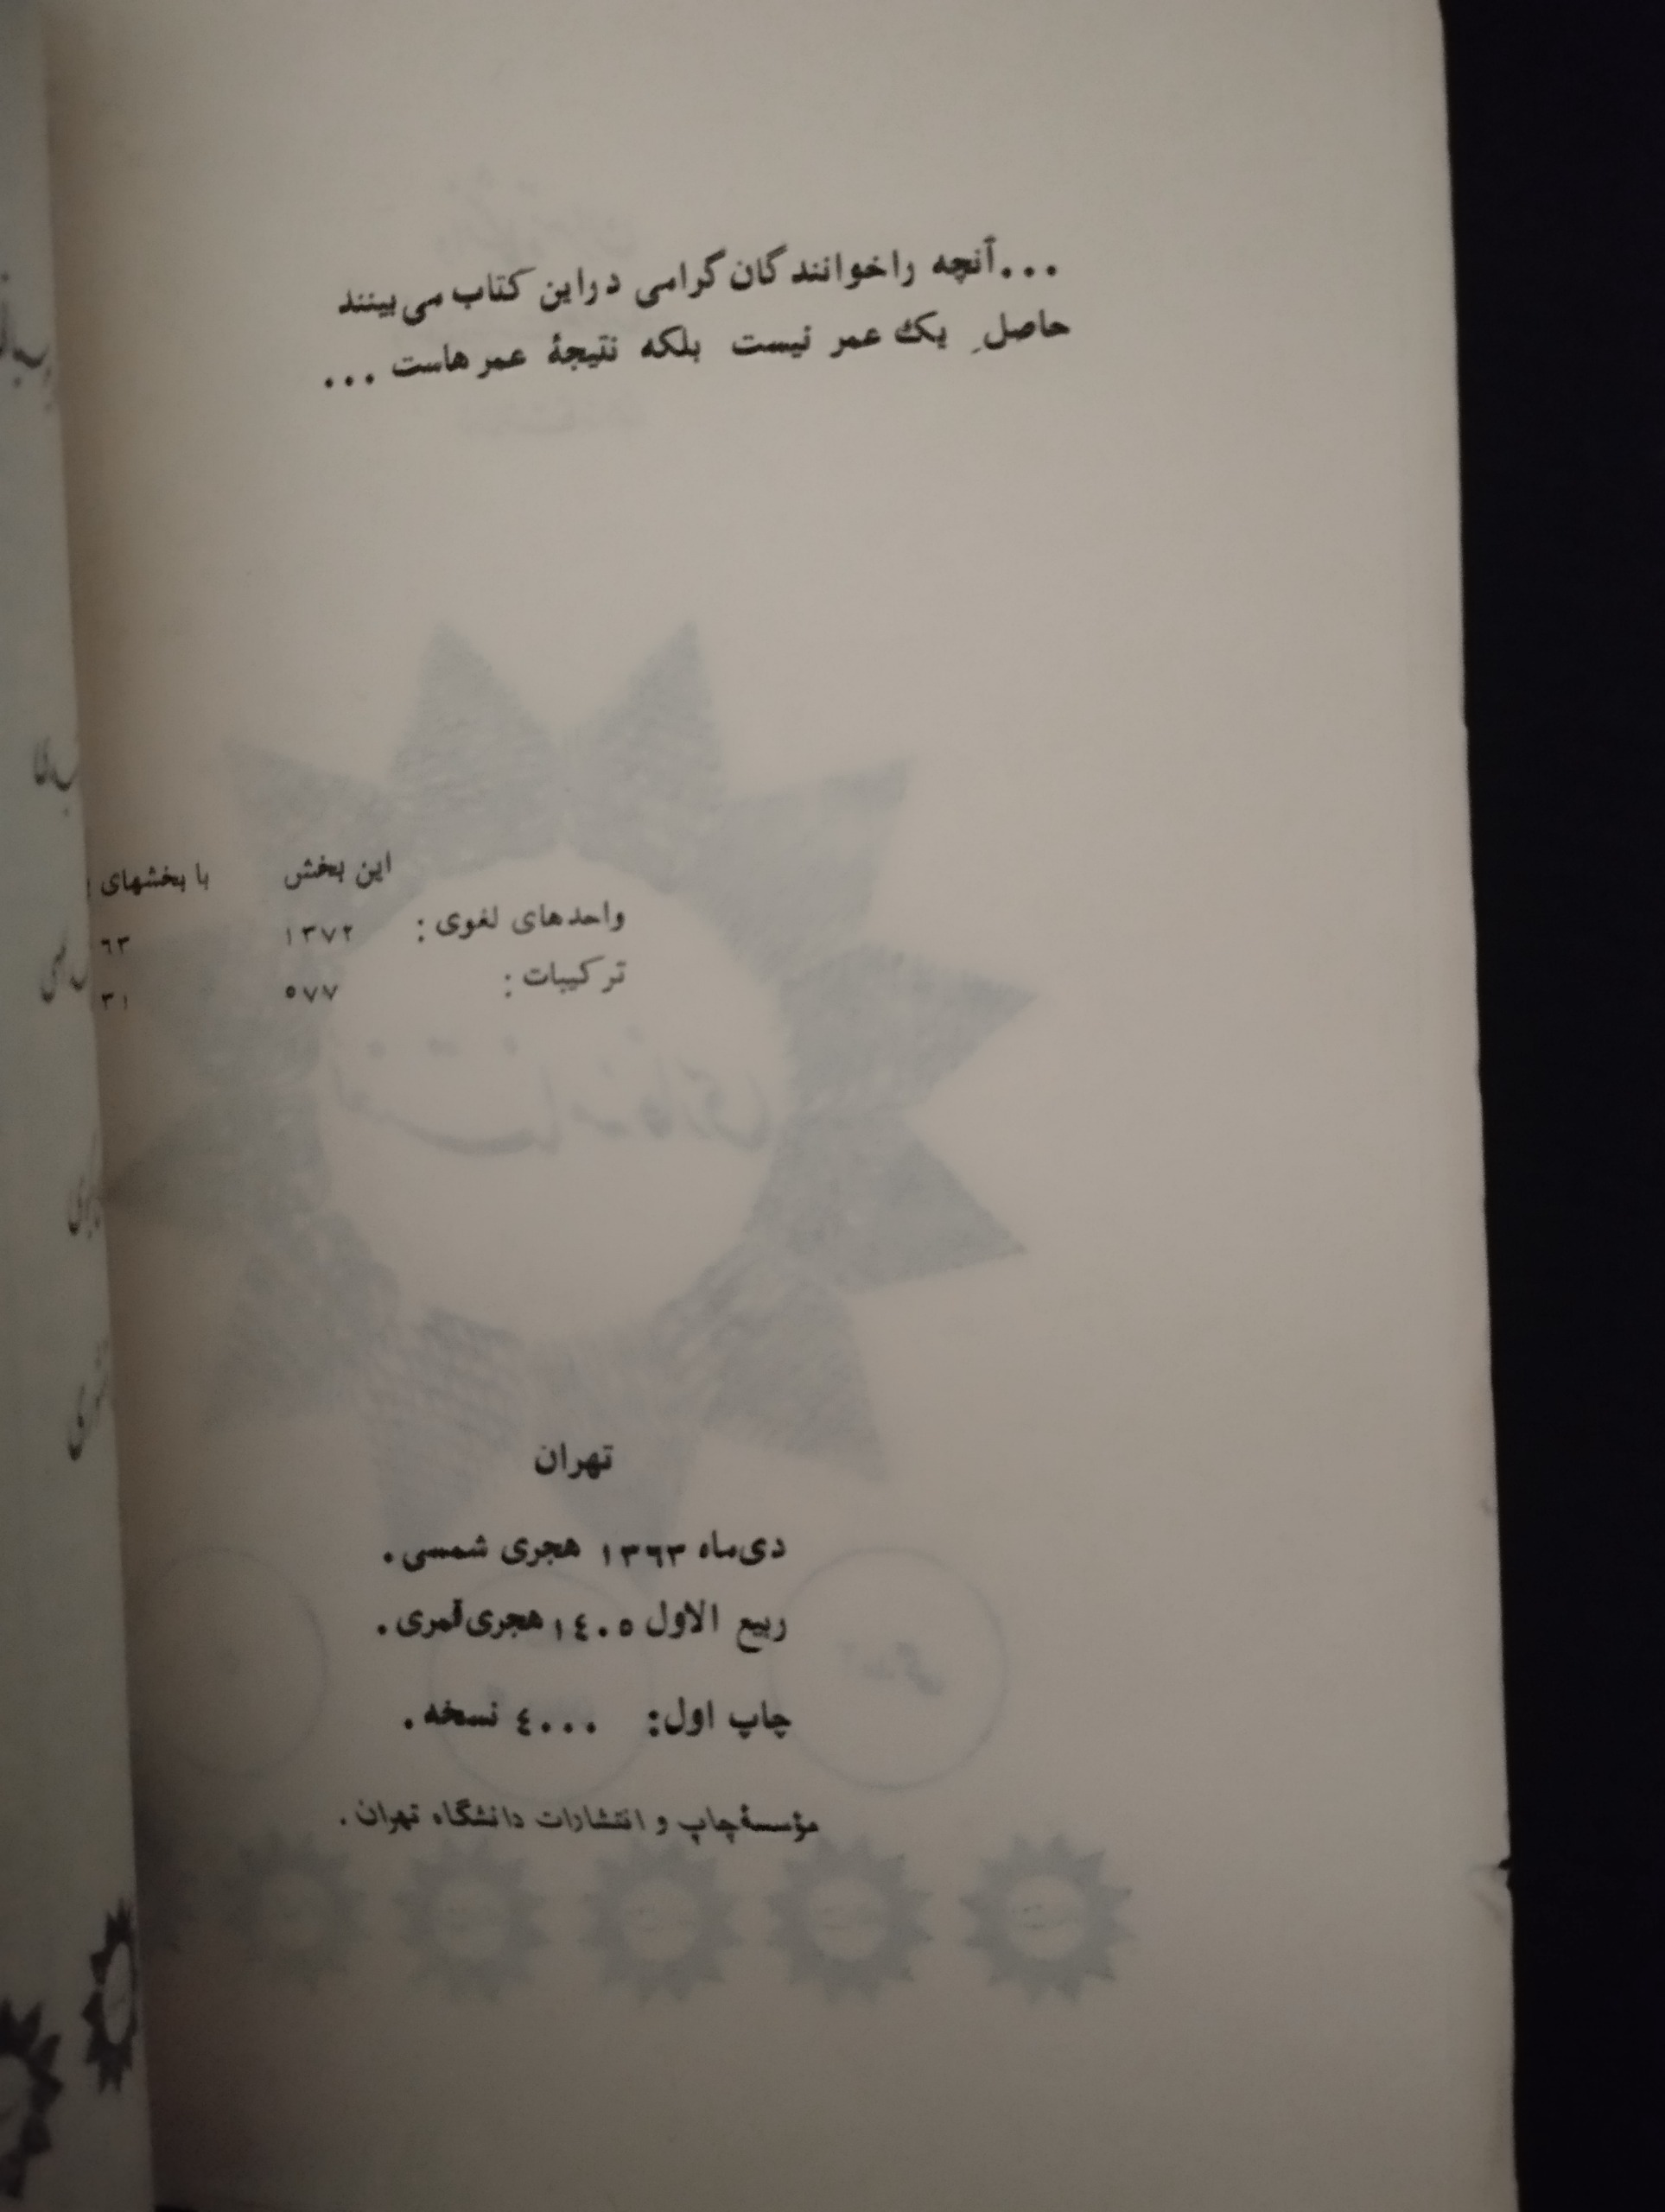 ...آنچه را خوانندگان گرامی در این کتاب می‌بینند
حاصلِ یک عمر نیست بلکه نتیجهٔ عمرهاست ...
این بخش با بخشهای
واحدهای لغوی : ۱۳۷۲ ۶۳
ترکیبات : ۵۷۷ ۳۱
تهران
دی‌ماه ۱۳۶۳ هجری شمسی .
ربیع الاول ۱٤۰۵ هجری‌قمری .
چاپ اول : ٤۰۰۰ نسخه .
مؤسسهٔ چاپ و انتشارات دانشگاه تهران .